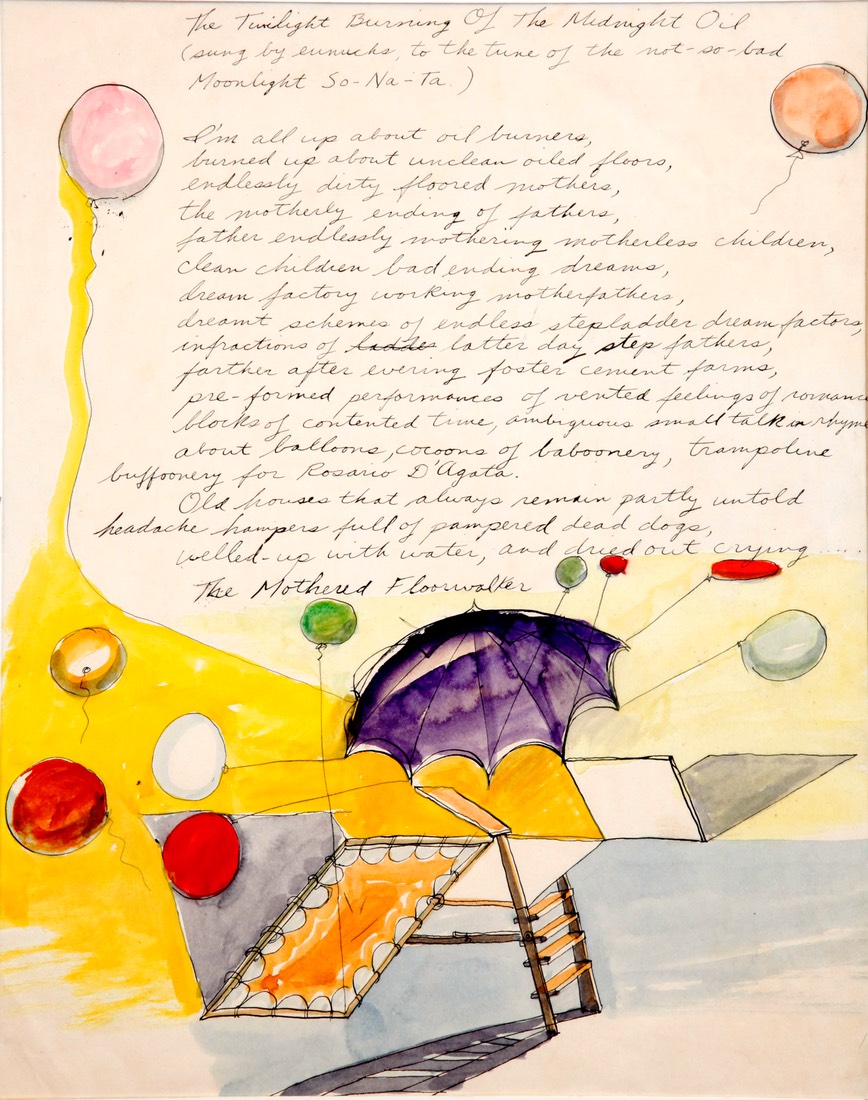 The Twilight Burning Of The Midnight Oil
(sung by eunuchs, to the tune of the not-so-bad
Moonlight So-Na-Ta.)
I'm all up about oil burners,
burned up about unclean oiled floors,
endlessly dirty floored mothers,
the motherly ending of fathers,
father endlessly mothering motherless children,
clean children bad ending dreams,
dream factory working motherfathers,
dreamt schemes of endless stepladder dream factors,
infractions of ladder latter day step fathers,
farther after evering foster cement farms,
pre-formed performances of vented feelings of romance
blocks of contented time, ambiguous small talk in rhyme
about balloons, cocoons of baboonery, trampoline
buffoonery for Rosario D'Agata.
Old houses that always remain partly untold
headache hampers full of pampered dead dogs,
welled-up with water, and dried out crying.....
The Mothered Floorwalker